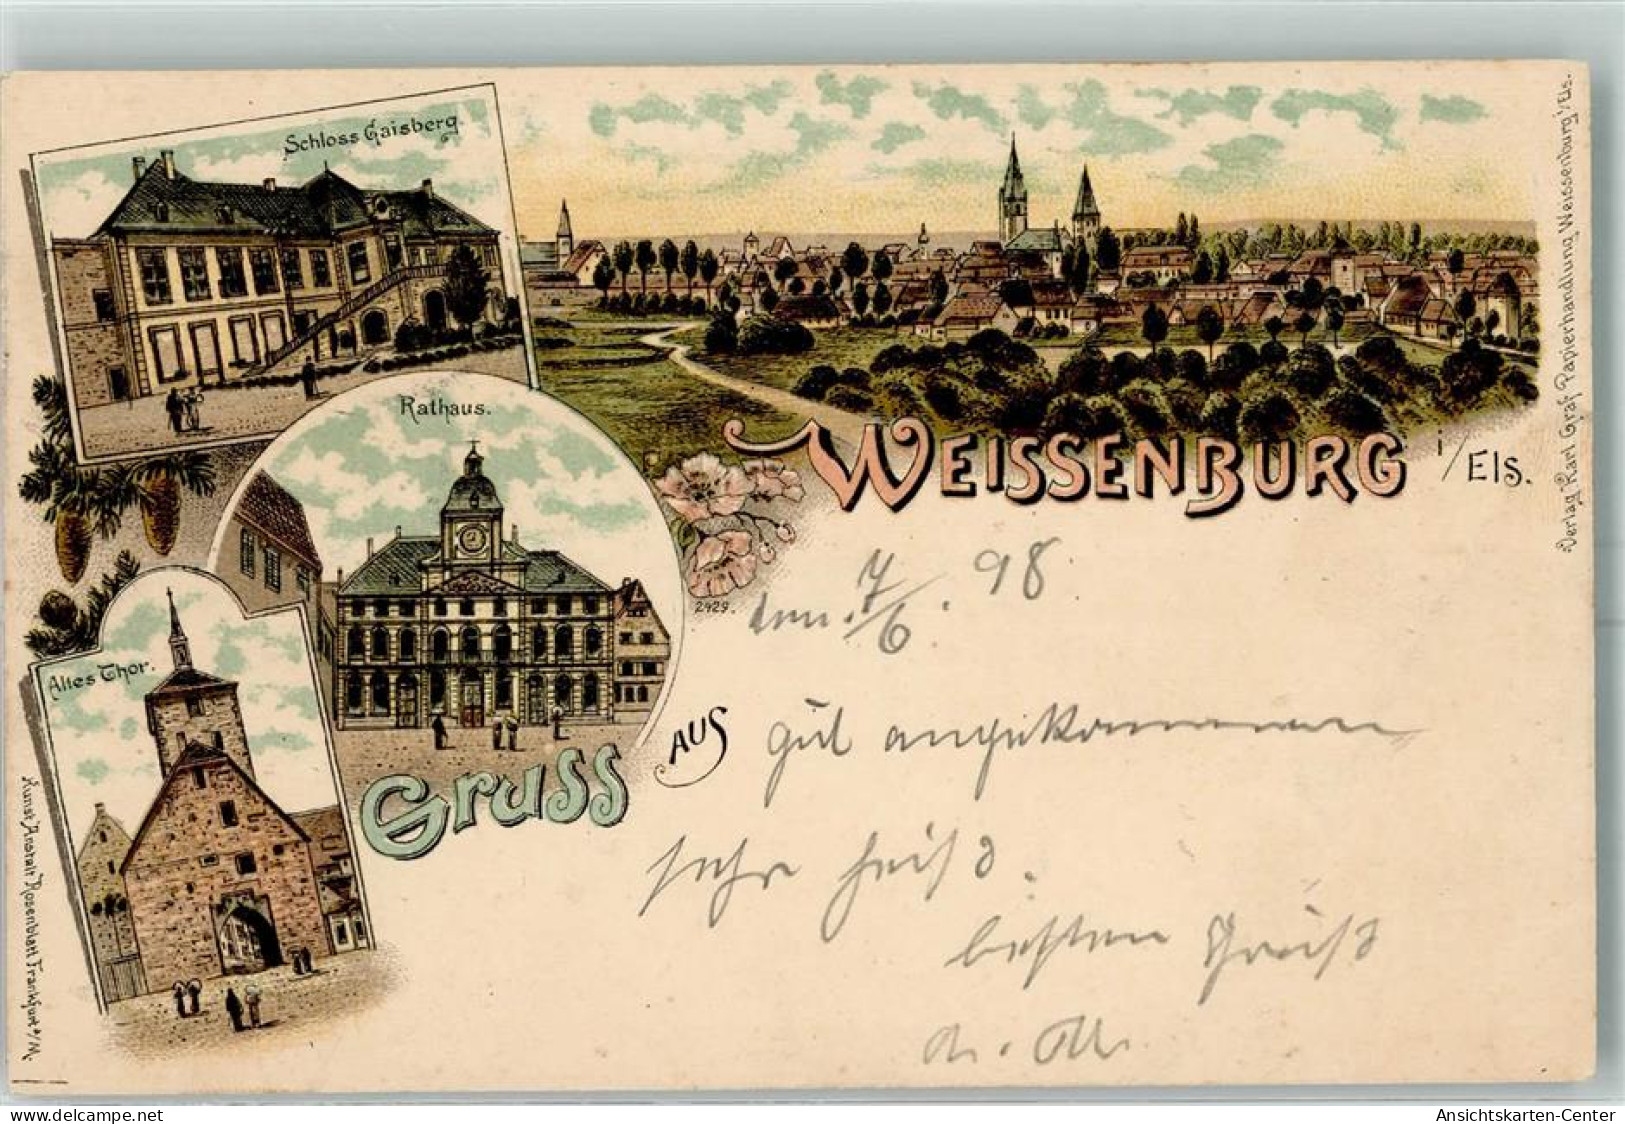 Schloss Gaisberg.
Rathaus.
Altes Thor.
WEISSENBURG i/Els.
GRUSS AUS
2429.
den 7/6. 98
gut angekommen
sehr heiß.
besten Gruß
Verlag Karl Graf Papierhandlung Weissenburg i/Els.
Kunst Anstalt Rosenblatt Frankfurt a/M.
delcampe.net
Ansichtskarten-Center